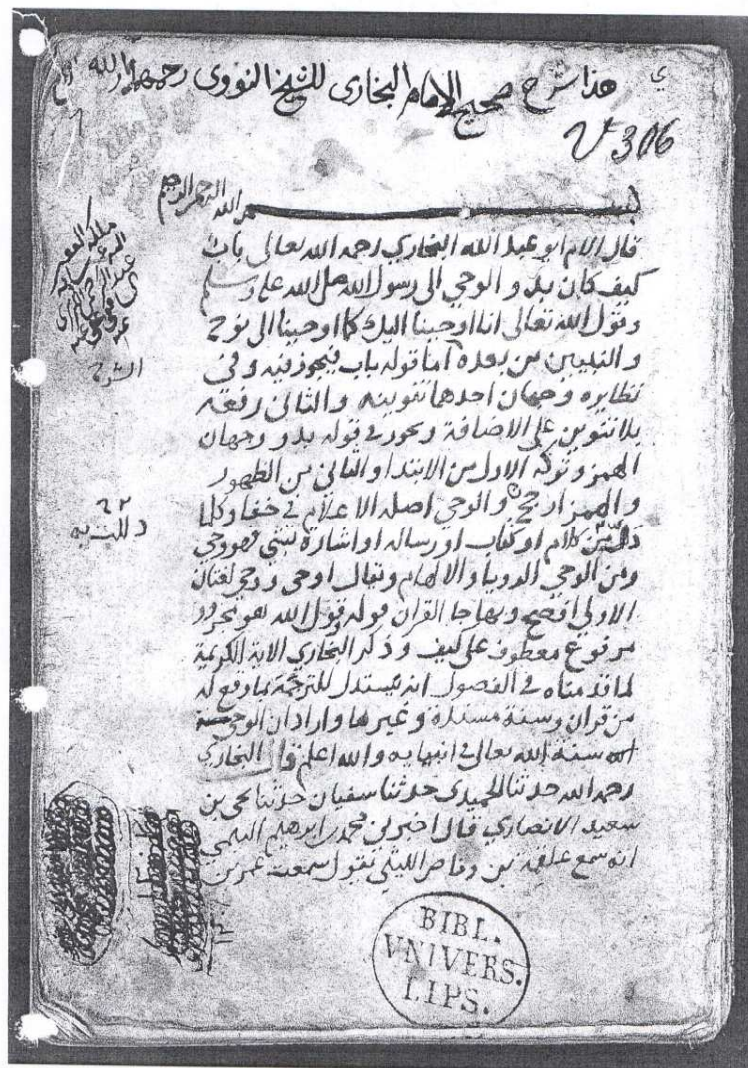 هذا شرح صحيح الامام البخاري للشيخ النووي رحمهما الله
V 306
بسم الله الرحمن الرحيم
قال الامام ابو عبد الله البخاري رحمه الله تعالى باب
كيف كان بدو الوحي الى رسول الله صلى الله عليه وسلم
وقول الله تعالى انا اوحينا اليك كما اوحينا الى نوح
والنبيين من بعده اما قوله باب فيجوز فيه وفي
نظايره وجهان احدها تنوينه والثاني رفعه
بلا تنوين على الاضافة ويجوز في قوله بدو وجهان
الهمز وتركه الاول من الابتدا والثاني من الظهور
والهمز ارجح والوحي اصله الاعلام في خفا وكلما
دل من كلام او كتاب او رسالة او اشارة بشي فهو وحي
ومن الوحي الرويا والالهام ويقال اوحى ووحى لغتان
الاولى افصح وبها جا القران قوله وقول الله هو مجرور
مرفوع معطوف على كيف وذكر البخاري الاية الكريمة
لما قدمناه في الفصول انه يستدل للترجمة بما وقع له
من قران وسنة مسندة وغيرها واراد ان الوحي سنة
سنة الله تعالى في انبيايه والله اعلم قال البخاري
رحمه الله حدثنا الحميدي حدثنا سفيان حدثنا يحيى بن
سعيد الانصاري قال اخبرني محمد بن ابرهيم التيمي
انه سمع علقمة بن وقاص الليثي يقول سمعت عمر بن
الشرح
BIBL.
VNIVERS.
LIPS.